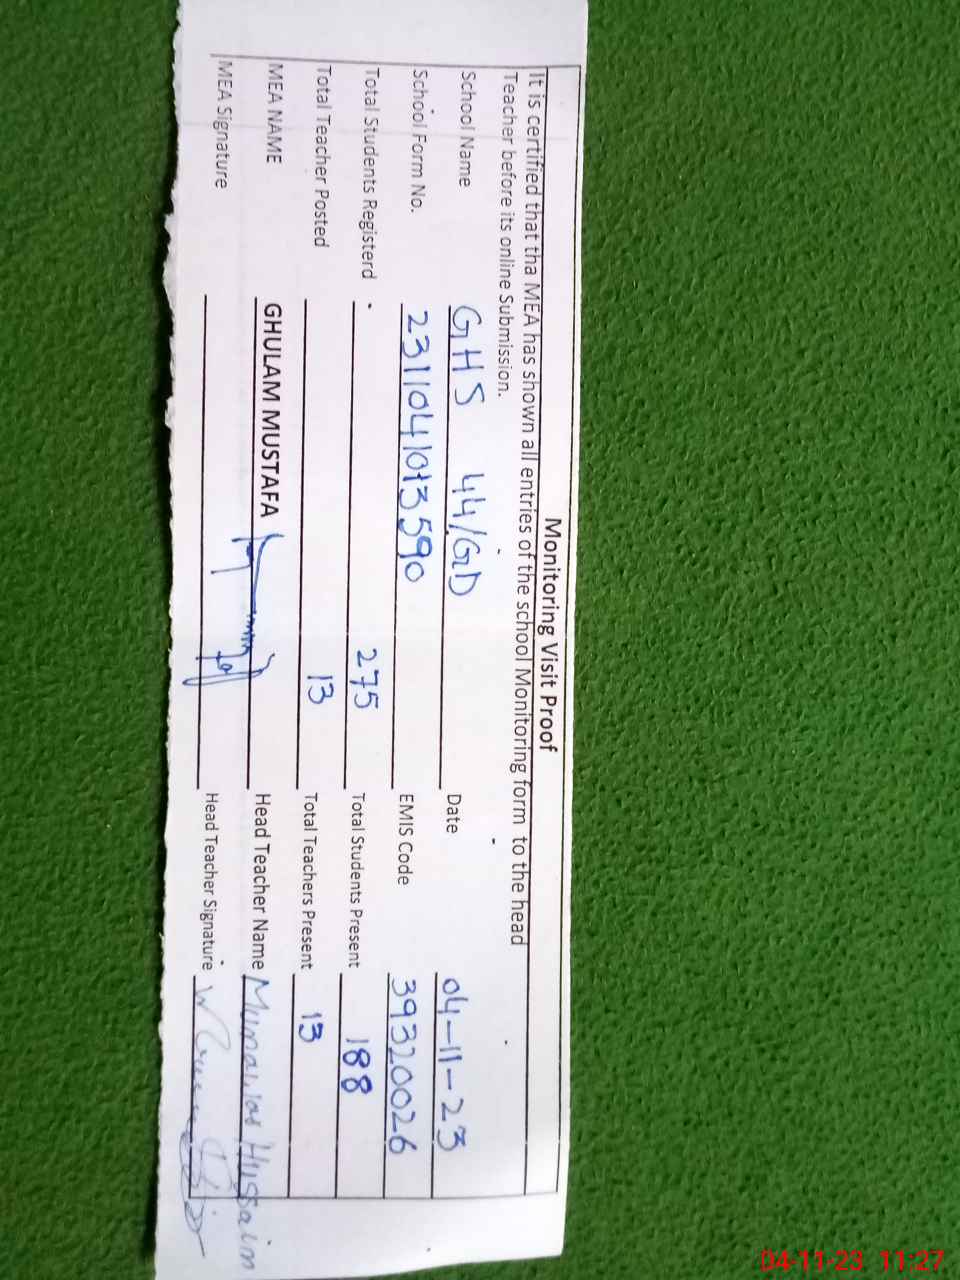 Monitoring Visit Proof
It is certified that tha MEA has shown all entries of the school Monitoring form to the head
Teacher before its online Submission.
School Name GHS 44/GD Date 04-11-23
School Form No. 2311041013590 EMIS Code 39320026
Total Students Registerd 275 Total Students Present 188
Total Teacher Posted 13 Total Teachers Present 13
MEA NAME GHULAM MUSTAFA Head Teacher Name Hussain
MEA Signature Head Teacher Signature
04-11-23 11:27